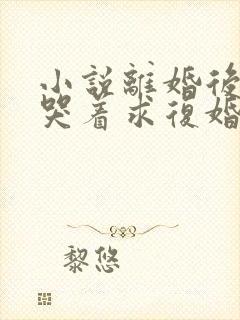 小説離婚後
哭着求復婚
黎悠